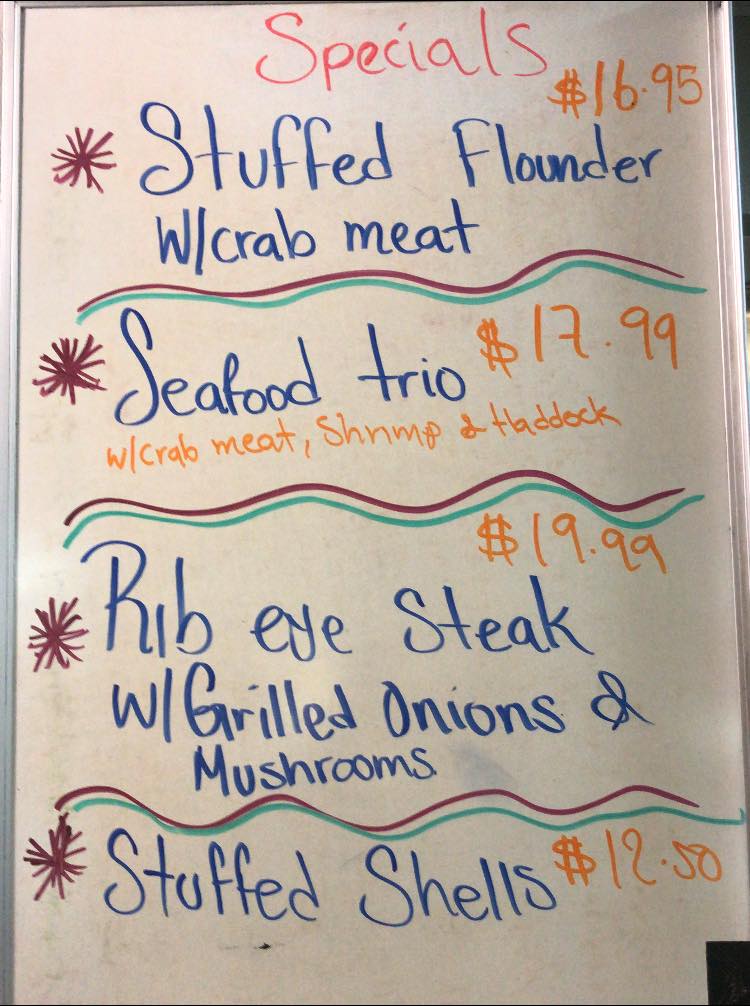 Specials
$16.95
Stuffed Flounder
W/crab meat
Seafood trio $17.99
w/crab meat, Shrimp & Haddock
$19.99
Rib eye Steak
W/Grilled Onions &
Mushrooms
Stuffed Shells $12.50